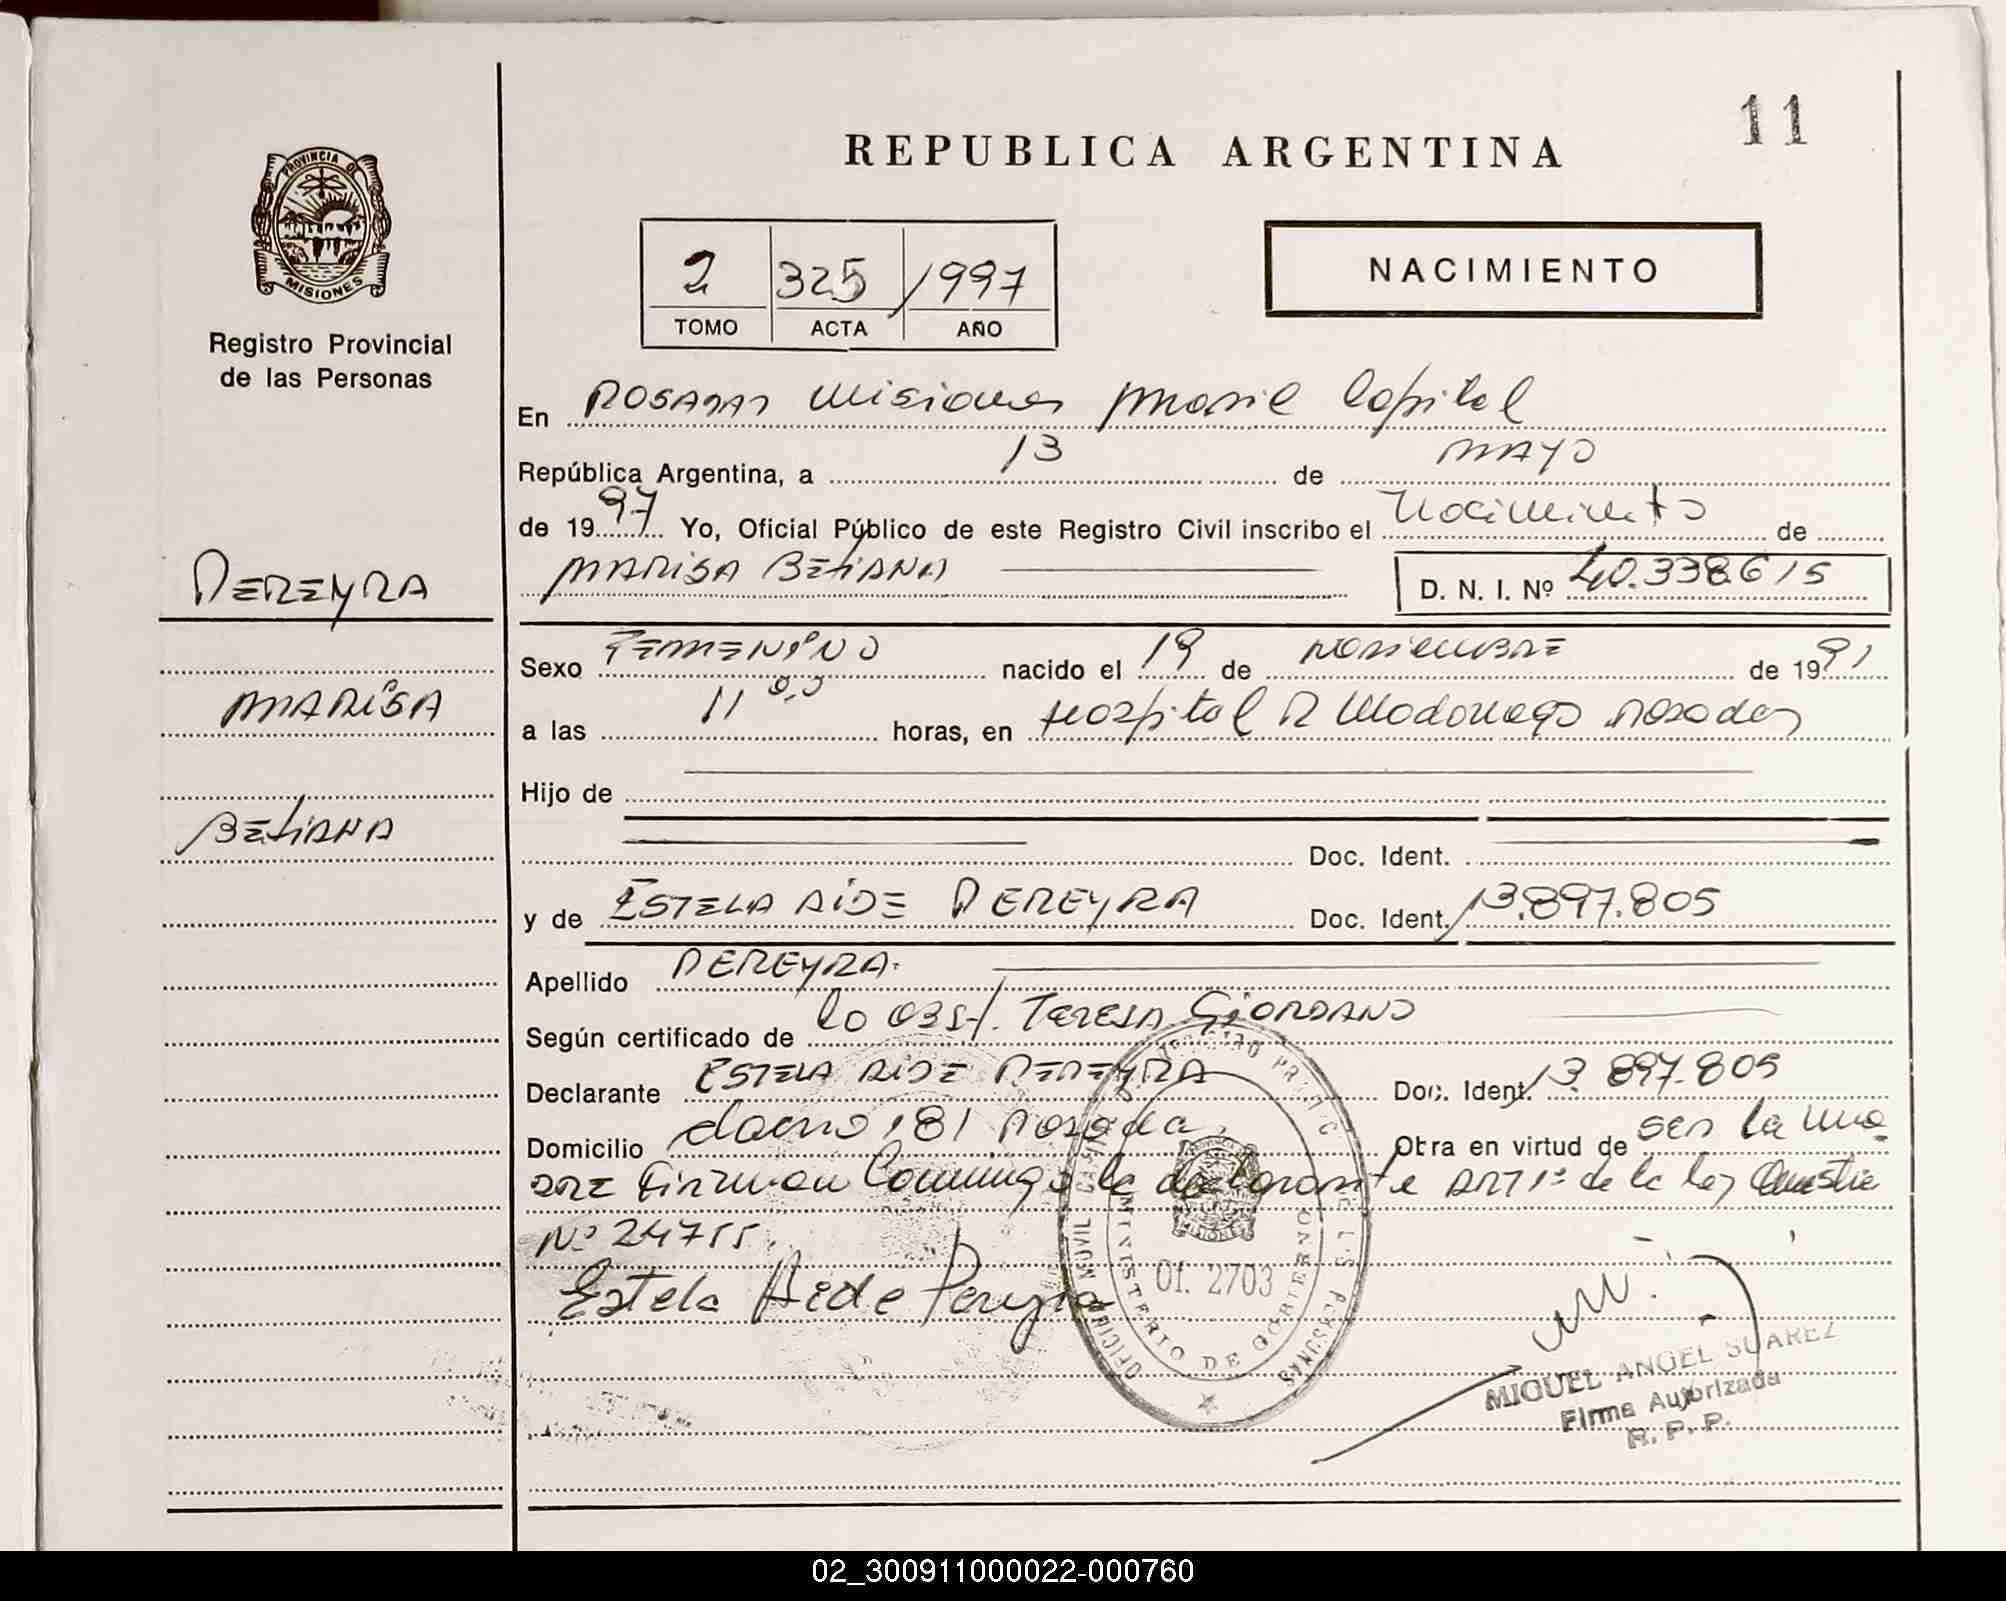 11
REPUBLICA ARGENTINA
PROVINCIA DE
MISIONES
Registro Provincial
de las Personas
2 325 1997
TOMO ACTA AÑO
NACIMIENTO
En Posadas Misiones Móvil Capital
República Argentina, a 13 de MAYO
de 1997 Yo, Oficial Público de este Registro Civil inscribo el Nacimiento de
MARISA BETIANA D. N. I. Nº 40.338.615
PEREYRA
MARISA
BETIANA
Sexo FEMENINO nacido el 19 de NOVIEMBRE de 1991
a las 11 00 horas, en Hospital R Madariaga Posadas
Hijo de
Doc. Ident.
y de ESTELA AIDE PEREYRA Doc. Ident. 13.897.805
Apellido PEREYRA.
Según certificado de la Obst. TERESA GIORDANO
Declarante ESTELA AIDE PEREYRA Doc. Ident. 13.897.805
Domicilio 181 Posadas Obra en virtud de ser la ma
dre Firman Conmigo la declarante ART 1º de la ley
Nº 24755.
Estela Aide Pereyra
OFICINA MOVIL REGISTRO PROVINCIAL DE LAS PERSONAS
MINISTERIO DE GOBIERNO
Of. 2703
MIGUEL ANGEL SUAREZ
Firma Autorizada
R. P. P.
02_300911000022-000760